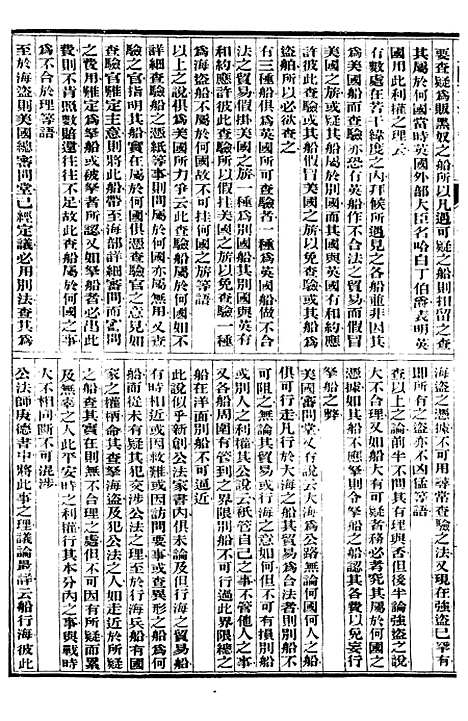 要查疑爲販黑奴之船所以凡遇可疑之船則扣留之查
其屬於何國當時英國外部大臣名哈白丁伯爵表明英
國用此利權之理云
有數處在若干緯度之內拜候所遇見之各船並非因其
爲美國船而查驗亦恐有英船作不合法之貿易而假冒
美國之旂或其船爲別國者而其國與英國有和約應
許彼此查驗或其船假冒美國之旂以免查驗或其船爲
盜船所以必欲查之
有三種船俱爲英國所可查驗者一種爲英國船做不合
法之貿易假掛美國之旂一種爲別國船其別國與英有
和約應許彼此查驗所以假挂美國之旂以免查驗一種
爲海盜船不屬於何國故不可挂何國之旂等語
以上之說俱爲美國所力爭云此查驗船屬於何國如不
詳細查驗船之憑紙等事則問屬於何國亦爲無用又查
驗之官指明其船實在屬於何國俱憑查驗官之意見如
查驗官難定主意則將此船帶至海部詳細審問而審問
之後用難定之爲拏船或被拏者所認又如拏船者必出此
費則不肯照數賠還往往不足故此查船屬於何國之事
爲不合於理等語
至於海盜則美國總審問堂已經定議必用別法查其爲
海盜之憑據不可用尋常查驗之法又現在強盜已罕有
即所有之盜亦不凶猛等語
查以上之論前半不問其有理與否但後半論強盜之說
大不合理又如船大有可疑者務必考究其屬於何國之
憑據如其船不應拏則令拏船之船認其各費以免妄行
拏船之弊
美國審問堂又有說云大海爲公路無論何國何人之船
俱可行走凡行於大海之船其貿易爲合法者則別船不
可阻之無論其貿易與行海之意如何但不可有損別船
或別人之利權其公說云祇管自己之事不管他人之事
又各船周圍有管到之界限別船不可行過此界限總之
船在洋面別船不可逼近
此說似乎新創公法家書內俱未論及但行海之貿易船
有時相近或因救難或因訪問要事或查異形之船爲何
船從未有疑其犯交涉公法之理至於行海兵船有國
家之權柄命其查拏海盜及犯公法之人如走近於所疑
之船查其實在則無不合理之處但不可因有所疑而累
及無辜之人此平安時之利權行其本分內之事與戰時
大不相同斷不可混涉
公法師庚德書中將此事之理議論最詳云船行海彼此